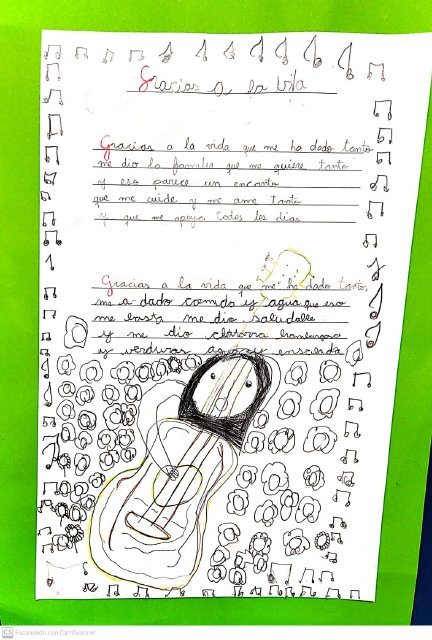 Gracias a la vida
Gracias a la vida que me ha dado tanto
me dio la familia que me quiere tanto
y eso parece un encanto
que me cuide y me ame Tanto
y que me apoya todos los dias
Gracias a la vida que me ha dado tanto,
me a dado comida y agua que eso
me basta me dio saludable
y me dio
y verduras agua y ensalada
CS Escaneado con CamScanner